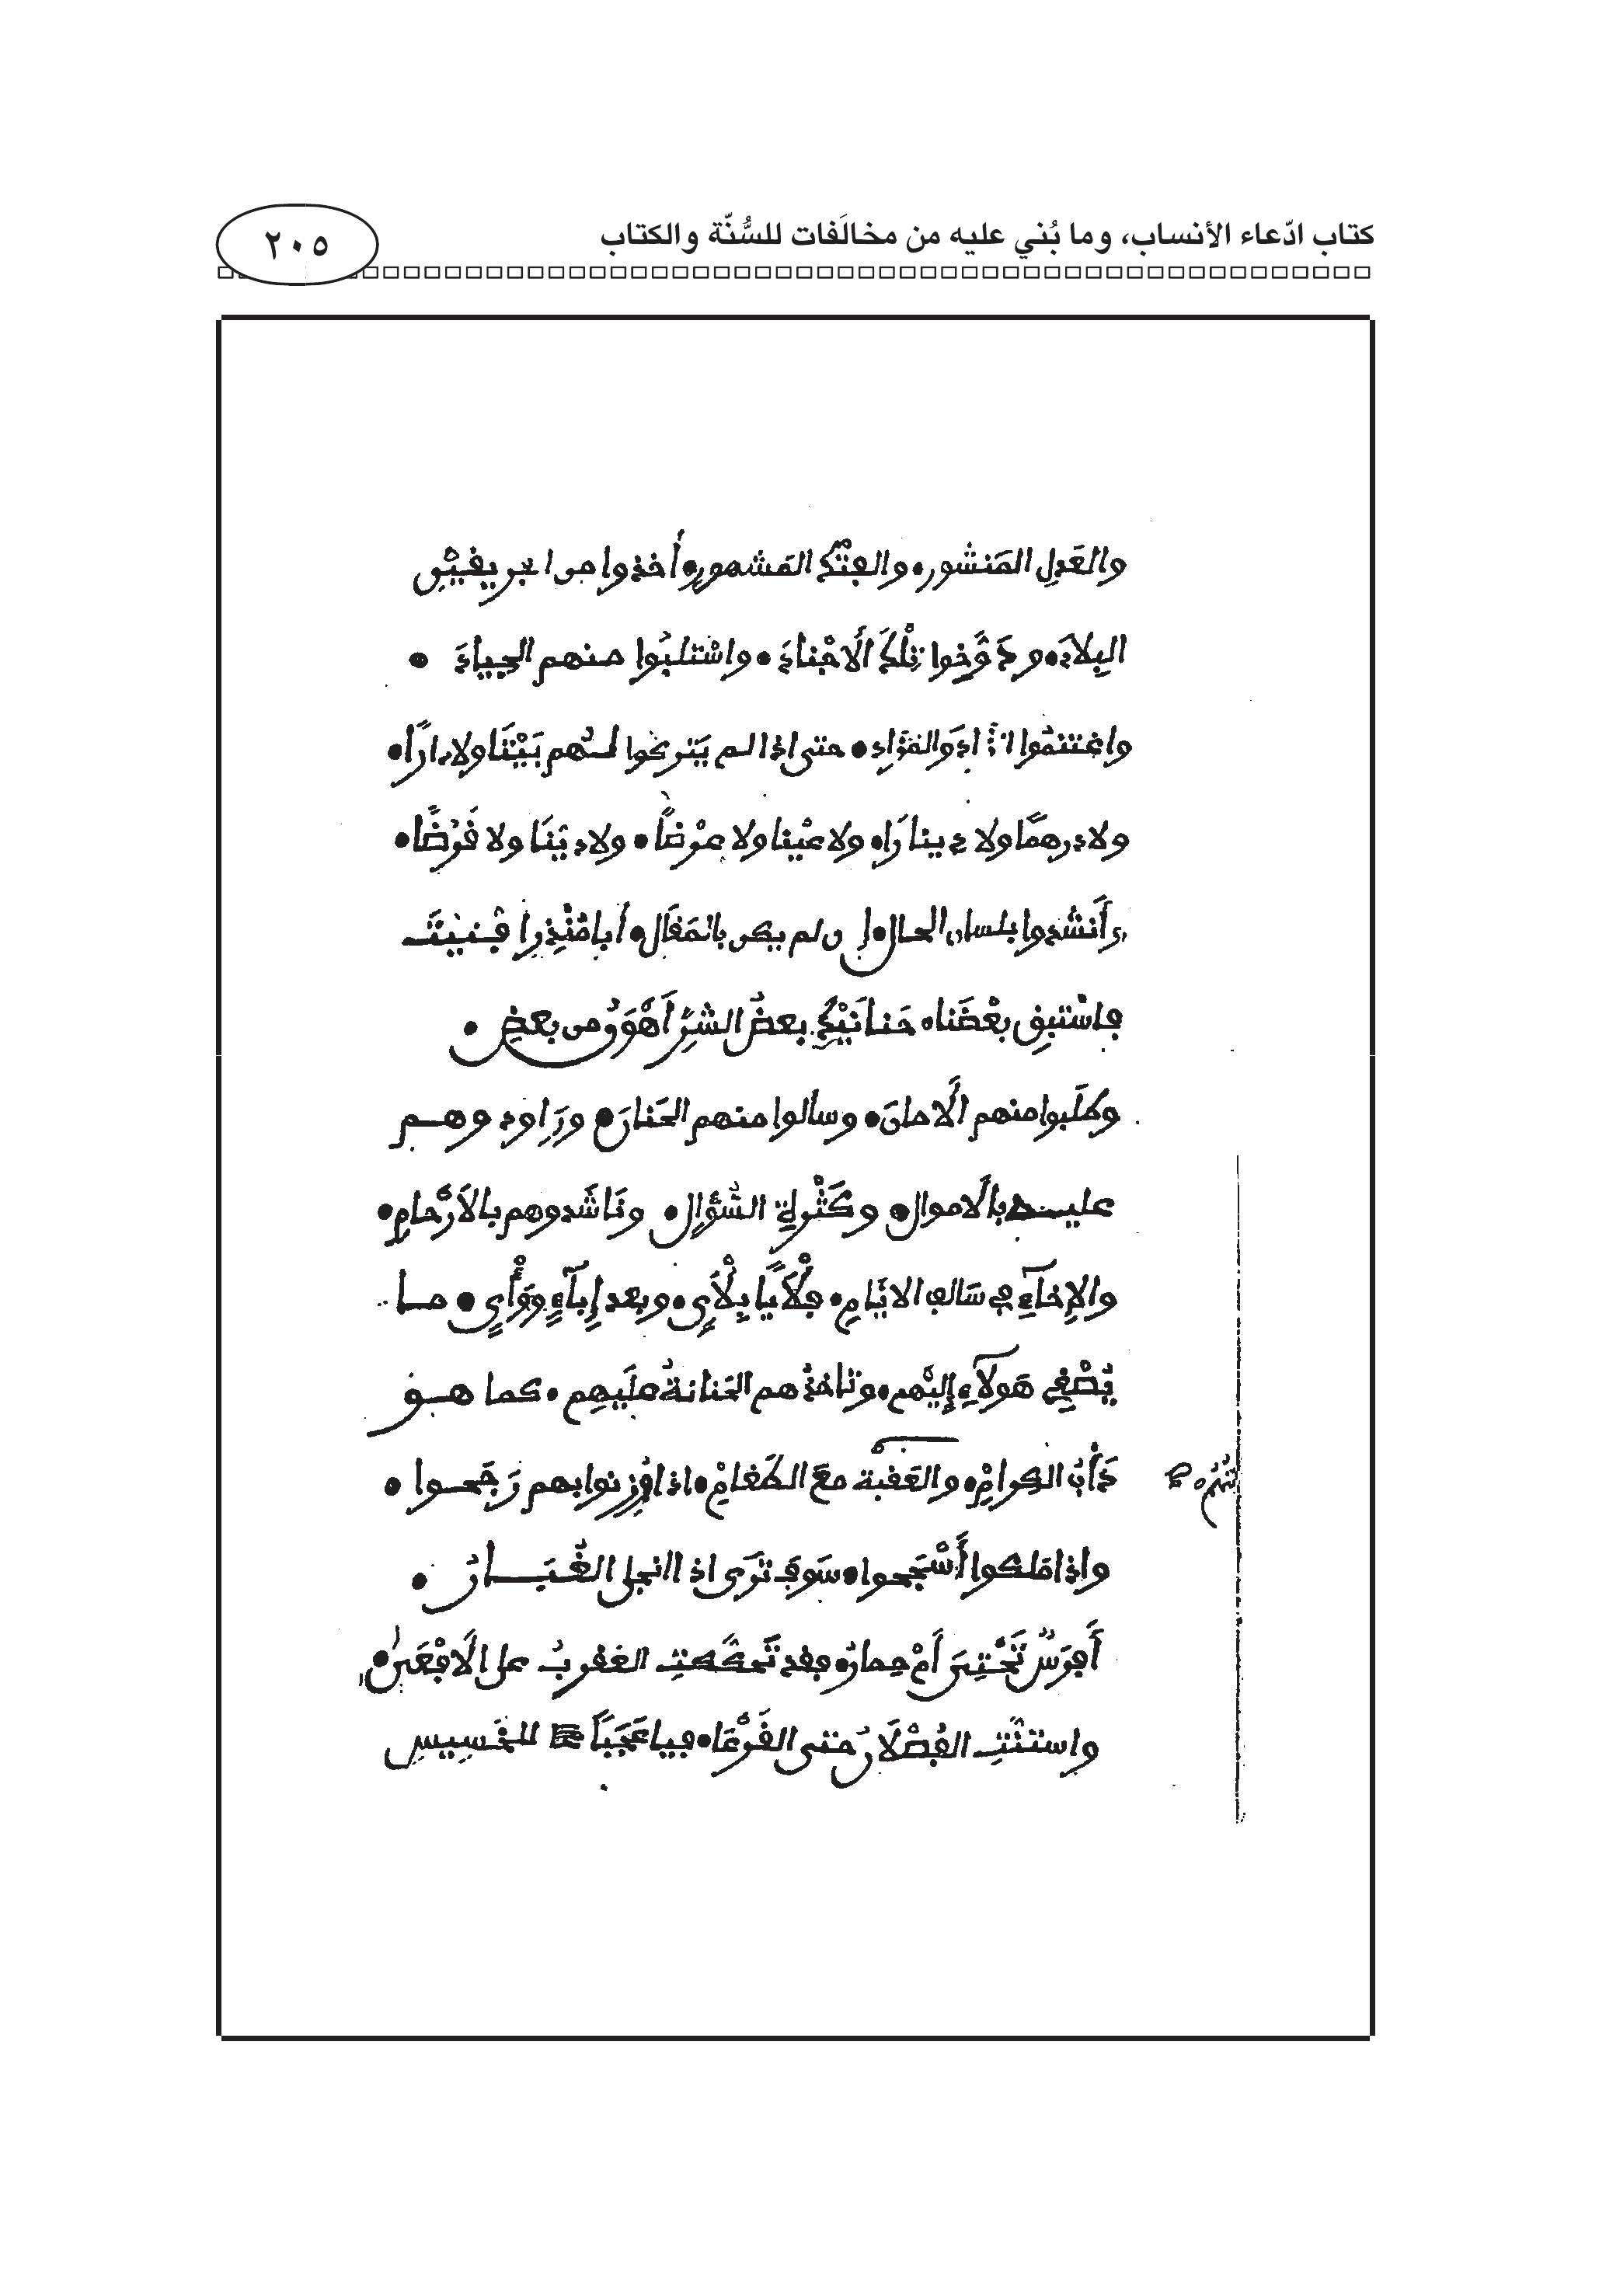 كتاب ادّعاء الأنساب، وما بُني عليه من مخالَفات للسُّنّة والكتاب
٢٠٥
والعَدلِ المَنشور، والفتْكِ المَشهور، أخذوا من
البِلاد، ودَوَّخوا تلْكَ الَاجْنادَ، واسْتَلبُوا منهم الجِيادَ
واغتنمُوا والمَزَادِ، حتى اذا لم يَتركوا لهُم بَيْتًا ولا دارًا،
ولا درهمًا ولا دينارًا، ولا عيْنا ولا عرْضًا، ولا دَيْنًا ولا فَرْضًا،
وأَنشدوا بلسان الحال، ان لم يكن بالمَقَال، أبا مُنْذِر افنيتَ
فاسْتبقِ بعْضَنا، حَنانَيْكَ بعضُ الشرِّ أهْوَنُ من بعضِ
وطَلَبوا منهم الَامانَ، وسألوا منهم الحَنانَ، ورَاودوهم
عليه بالَاموال، وكَثْرةِ السُّؤَالِ، ونَاشَدوهم بالَارْحامِ،
والإِخاءِ في سَالف الايّامِ، فلَأيًا بِلَأْيٍ، وبعد إِباءٍ ووَأْيٍ، ما
يُصْغِي هَولاءِ إليْهم، وتاخذُهم الحَنانةُ علَيهِم، كما هو
دَأبُ الكرامِ، والعَقبة معَ الطَغامْ، اذا وُزِنوا بهم رَجَحوا
واذا مَلكوا أسْجَحوا، سَوفَ تَرَى اذا انجلى الغُبَارُ
أفرَسٌ تَحْتِىَ أمْ حِمارُ، فقد تَحَكَّكتِ العَقربُ على الَافْعَى،
واستنَّتِ الفُصْلَانُ حتى القَرْعَا، فيا عَجَبًا للخَسِيسِ